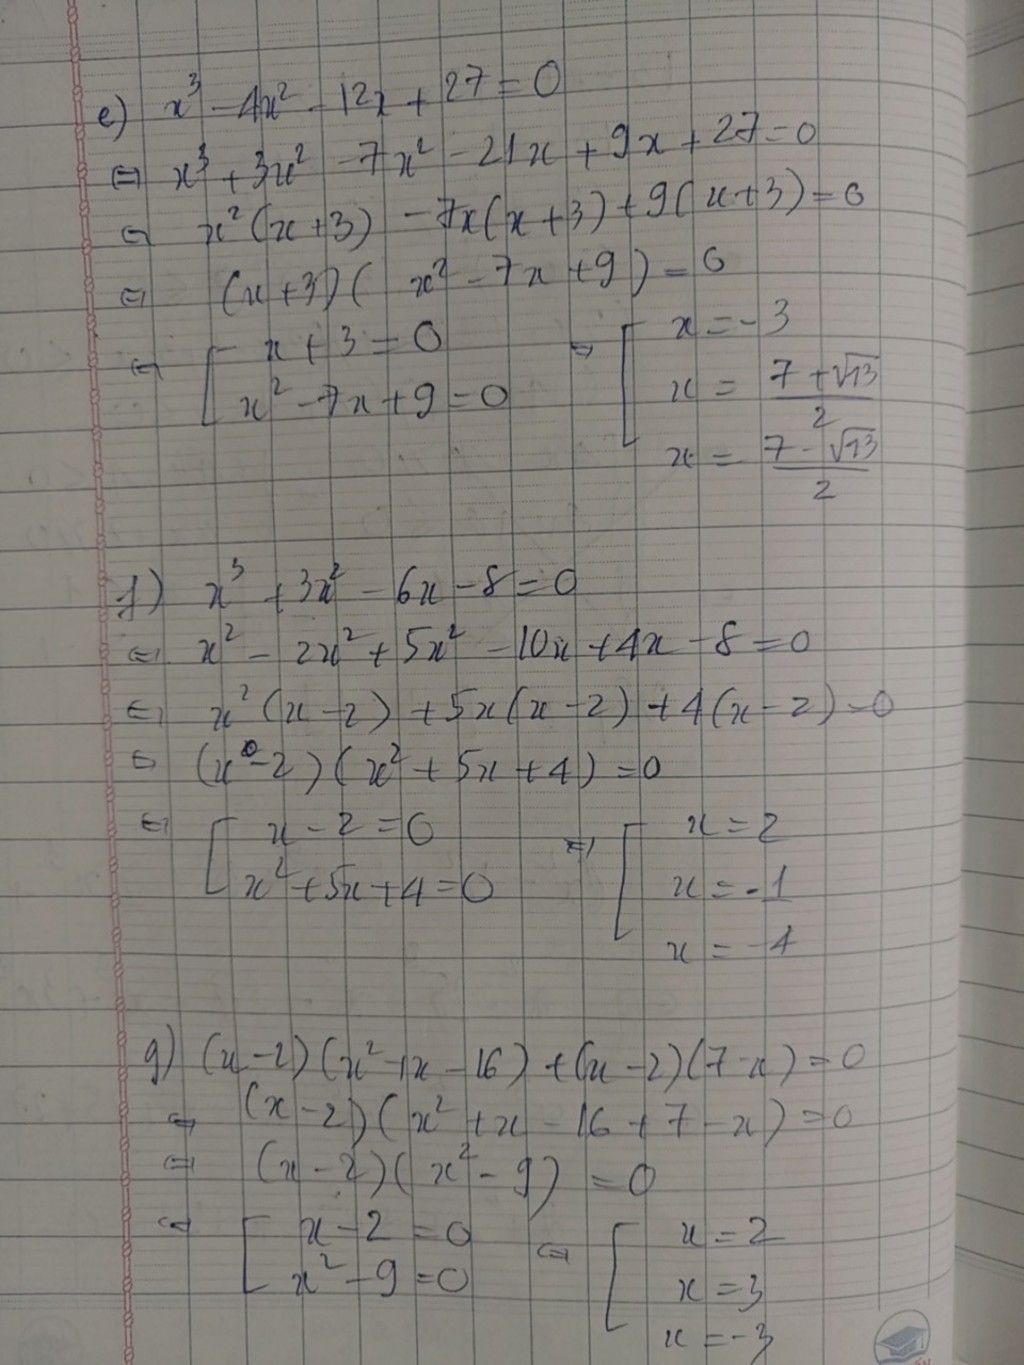 e) x³ - 4x² - 12x + 27 = 0
⇔ x³ + 3x² - 7x² - 21x + 9x + 27 = 0
⇔ x²(x+3) - 7x(x+3) + 9(x+3) = 0
⇔ (x+3)(x² - 7x + 9) = 0
⇔ [ x + 3 = 0 ⇔ [ x = -3
x² - 7x + 9 = 0 x = (7 + √13)/2
x = (7 - √13)/2
f) x³ + 3x² - 6x - 8 = 0
⇔ x² - 2x² + 5x² - 10x + 4x - 8 = 0
⇔ x²(x-2) + 5x(x-2) + 4(x-2) = 0
⇔ (x-2)(x² + 5x + 4) = 0
⇔ [ x - 2 = 0 ⇔ [ x = 2
x² + 5x + 4 = 0 x = -1
x = -4
g) (x-2)(x² + x - 16) + (x-2)(7-x) = 0
⇔ (x-2)(x² + x - 16 + 7 - x) = 0
⇔ (x-2)(x² - 9) = 0
⇔ [ x - 2 = 0 ⇔ [ x = 2
x² - 9 = 0 x = 3
x = -3